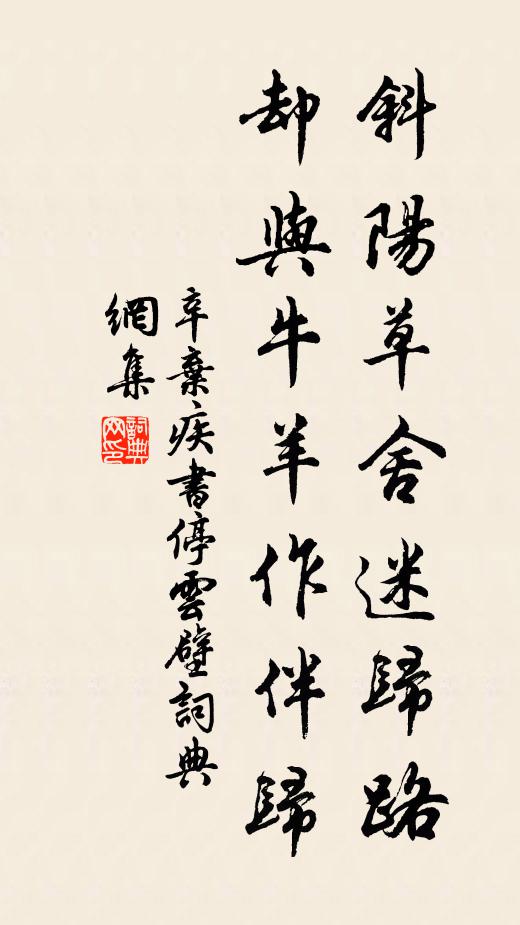 斜陽草舍迷歸路
却與牛羊作伴歸
辛棄疾書停雲壁詞典
網集
詞典
网印